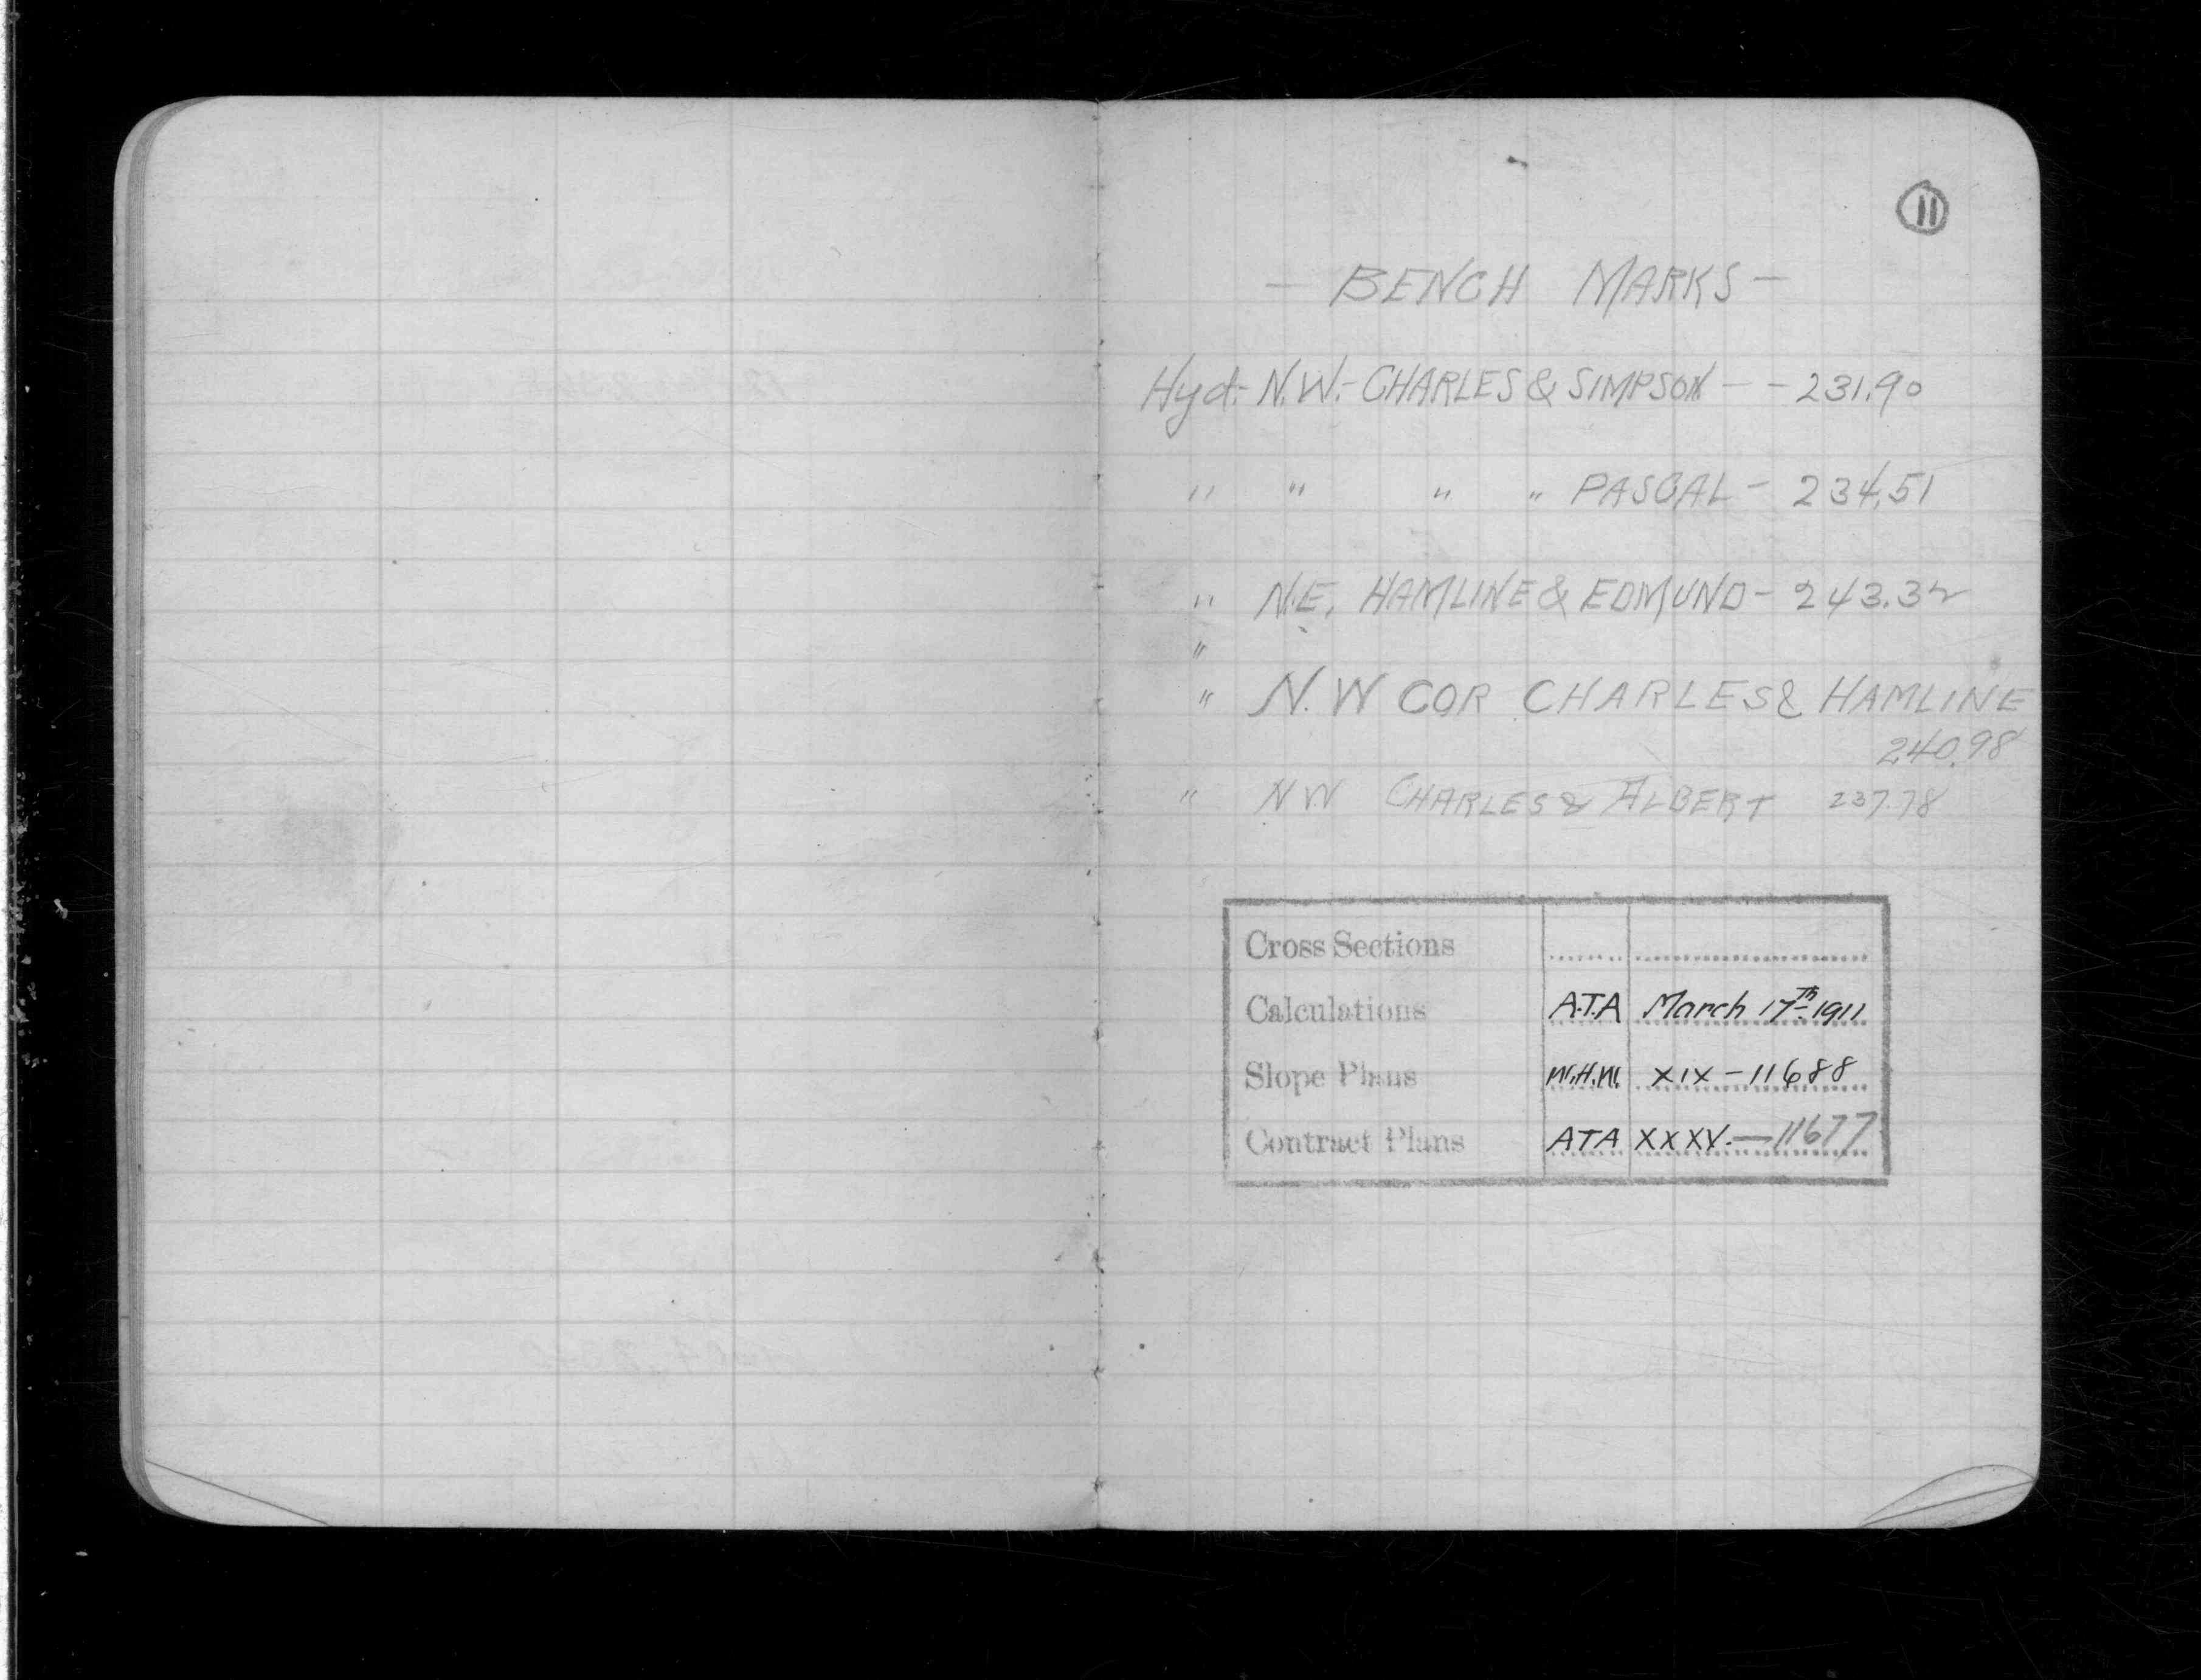 11
- BENCH MARKS -
Hyd. N.W.- CHARLES & SIMPSON - - 231.90
" " " " PASCAL - 234.51
" N.E. HAMLINE & EDMUND - 243.32
"
" N.W COR CHARLES & HAMLINE
240.98
" NW CHARLES & ALBERT 237.78
Cross Sections
Calculations A.T.A March 17th 1911
Slope Plans XIX - 11688
Contract Plans ATA XXXV. - 11677